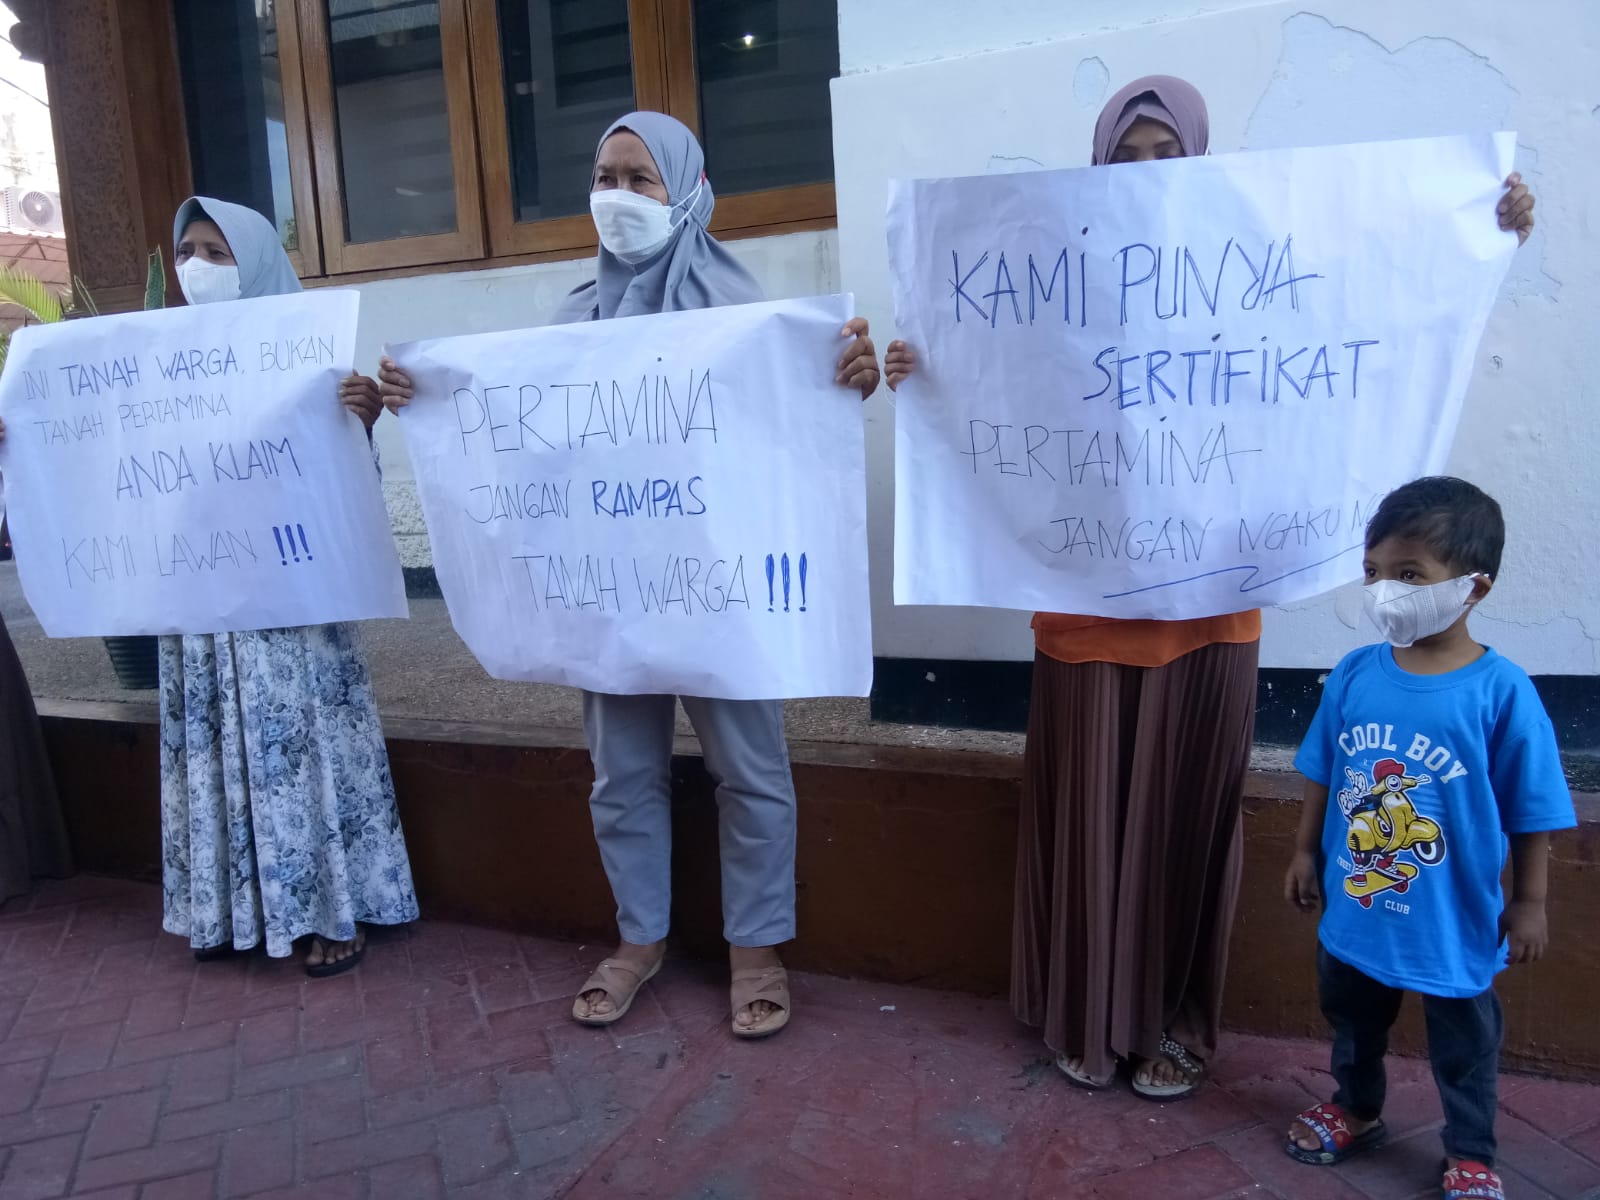 INI TANAH WARGA, BUKAN
TANAH PERTAMINA
ANDA KLAIM
KAMI LAWAN !!!
PERTAMINA
JANGAN RAMPAS
TANAH WARGA !!!
KAMI PUNYA
SERTIFIKAT
PERTAMINA
JANGAN NGAKU
COOL BOY
STREET
CLUB